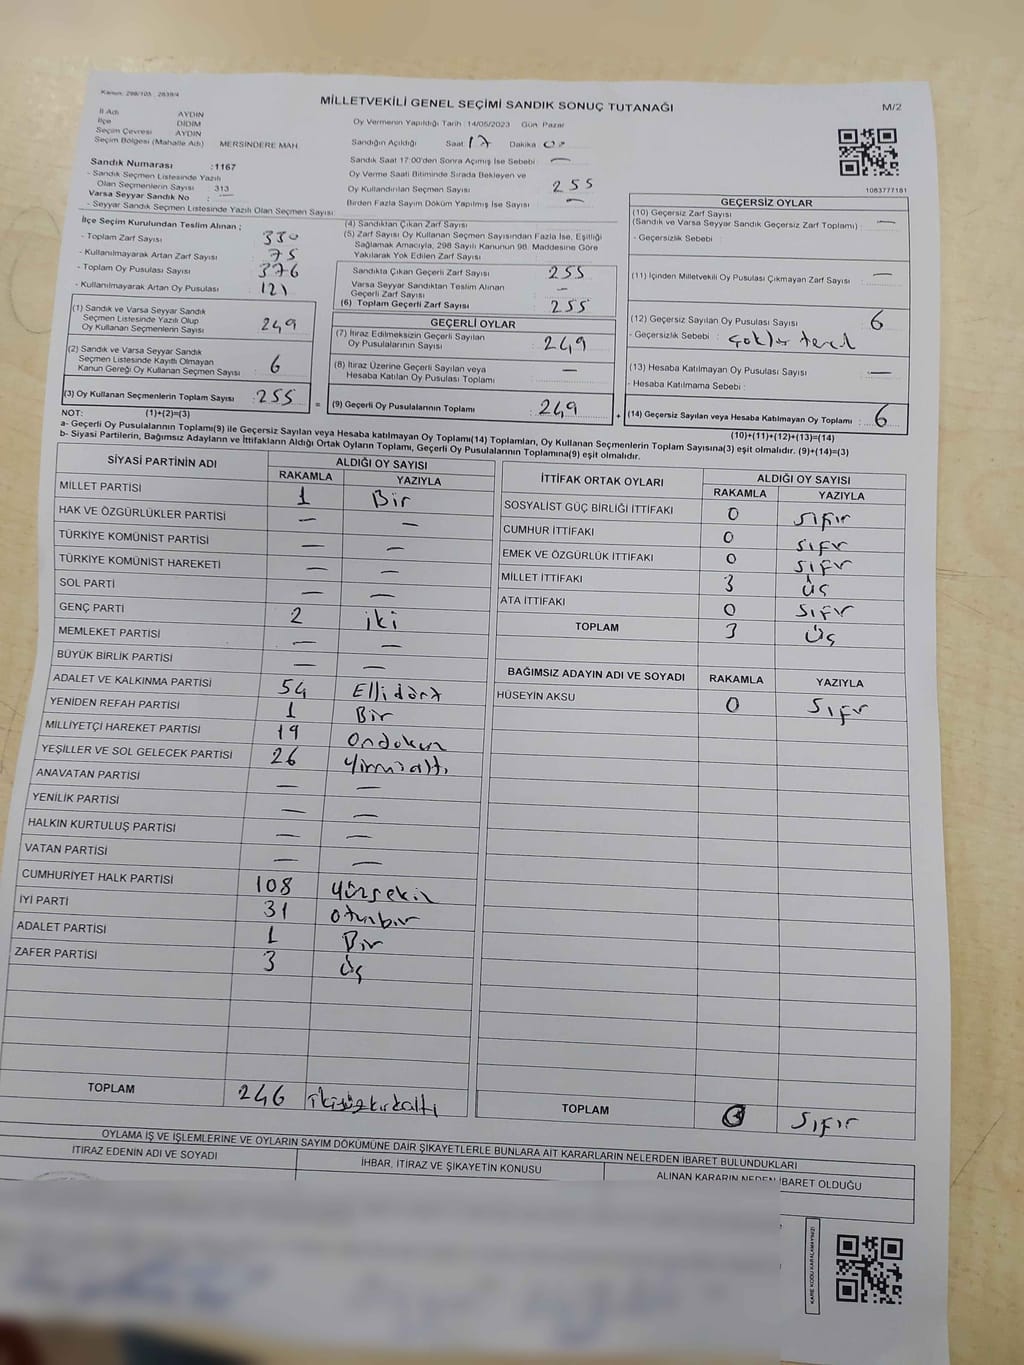 Kanun: 298/103 , 2839/4
MİLLETVEKİLİ GENEL SEÇİMİ SANDIK SONUÇ TUTANAĞI
M/2
İl Adı AYDIN
İlçe DİDİM
Seçim Çevresi AYDIN
Seçim Bölgesi (Mahalle Adı) MERSİNDERE MAH.
Sandık Numarası : 1167
- Sandık Seçmen Listesinde Yazılı
Olan Seçmenlerin Sayısı 313
Varsa Seyyar Sandık No : —
- Seyyar Seçmen Listesinde Yazılı Olan Seçmen Sayısı
Oy Vermenin Yapıldığı Tarih :14/05/2023 Gün Pazar
Sandığın Açıldığı Saat 17 Dakika 00
Sandık Saat 17:00'den Sonra Açımış İse Sebebi : —
Oy Verme Saati Bitiminde Sırada Bekleyen ve
Oy Kullandırılan Seçmen Sayısı 255
Birden Fazla Sayım Döküm Yapılmış İse Sayısı : —
1083777181
İlçe Seçim Kurulundan Teslim Alınan ;
- Toplam Zarf Sayısı : 330
- Kullanılmayarak Artan Zarf Sayısı : 75
- Toplam Oy Pusulası Sayısı : 376
- Kullanılmayarak Artan Oy Pusulası : 121
(1) Sandık ve Varsa Seyyar Sandık
Seçmen Listesinde Yazılı Olup
Oy Kullanan Seçmenlerin Sayısı : 249
(2) Sandık ve Varsa Seyyar Sandık
Seçmen Listesinde Kayıtlı Olmayan
Kanun Gereği Oy Kullanan Seçmen Sayısı : 6
(3) Oy Kullanan Seçmenlerin Toplam Sayısı : 255 =
(4) Sandıktan Çıkan Zarf Sayısı
(5) Zarf Sayısı Oy Kullanan Seçmen Sayısından Fazla İse, Eşitliği
Sağlamak Amacıyla, 298 Sayılı Kanunun 98. Maddesine Göre
Yakılarak Yok Edilen Zarf Sayısı
Sandıkta Çıkan Geçerli Zarf Sayısı : 255
Varsa Seyyar Sandıktan Teslim Alınan
Geçerli Zarf Sayısı : —
(6) Toplam Geçerli Zarf Sayısı : 255
GEÇERLİ OYLAR
(7) İtiraz Edilmeksizin Geçerli Sayılan
Oy Pusulalarının Sayısı : 249
(8) İtiraz Üzerine Geçerli Sayılan veya
Hesaba Katılan Oy Pusulası Toplamı : —
(9) Geçerli Oy Pusulalarının Toplamı : 249 +
GEÇERSİZ OYLAR
(10) Geçersiz Zarf Sayısı
(Sandık ve Varsa Seyyar Sandık Geçersiz Zarf Toplamı) : —
- Geçersizlik Sebebi :
(11) İçinden Milletvekili Oy Pusulası Çıkmayan Zarf Sayısı : —
(12) Geçersiz Sayılan Oy Pusulası Sayısı : 6
- Geçersizlik Sebebi :
(13) Hesaba Katılmayan Oy Pusulası Sayısı : —
- Hesaba Katılmama Sebebi :
(14) Geçersiz Sayılan veya Hesaba Katılmayan Oy Toplamı : 6
NOT: (1)+(2)=(3)
(10)+(11)+(12)+(13)=(14)
a- Geçerli Oy Pusulalarının Toplamı(9) ile Geçersiz Sayılan veya Hesaba katılmayan Oy Toplamı(14) Toplamları, Oy Kullanan Seçmenlerin Toplam Sayısına(3) eşit olmalıdır. (9)+(14)=(3)
b- Siyasi Partilerin, Bağımsız Adayların ve İttifakların Aldığı Ortak Oyların Toplamı, Geçerli Oy Pusulalarının Toplamına(9) eşit olmalıdır.
SİYASİ PARTİNİN ADI ALDIĞI OY SAYISI
RAKAMLA YAZIYLA
MİLLET PARTİSİ 1 Bir
HAK VE ÖZGÜRLÜKLER PARTİSİ — —
TÜRKİYE KOMÜNİST PARTİSİ — —
TÜRKİYE KOMÜNİST HAREKETİ — —
SOL PARTİ — —
GENÇ PARTİ 2 iki
MEMLEKET PARTİSİ — —
BÜYÜK BİRLİK PARTİSİ — —
ADALET VE KALKINMA PARTİSİ 54 Ellidört
YENİDEN REFAH PARTİSİ 1 Bir
MİLLİYETÇİ HAREKET PARTİSİ 19 Ondokuz
YEŞİLLER VE SOL GELECEK PARTİSİ 26 Yirmialtı
ANAVATAN PARTİSİ — —
YENİLİK PARTİSİ — —
HALKIN KURTULUŞ PARTİSİ — —
VATAN PARTİSİ — —
CUMHURİYET HALK PARTİSİ 108 Yüzsekiz
İYİ PARTİ 31 Otuzbir
ADALET PARTİSİ 1 Bir
ZAFER PARTİSİ 3 Üç
TOPLAM 246 ikiyüzkırkaltı
İTTİFAK ORTAK OYLARI ALDIĞI OY SAYISI
RAKAMLA YAZIYLA
SOSYALİST GÜÇ BİRLİĞİ İTTİFAKI 0 sıfır
CUMHUR İTTİFAKI 0 sıfır
EMEK VE ÖZGÜRLÜK İTTİFAKI 0 sıfır
MİLLET İTTİFAKI 3 Üç
ATA İTTİFAKI 0 sıfır
TOPLAM 3 Üç
BAĞIMSIZ ADAYIN ADI VE SOYADI RAKAMLA YAZIYLA
HÜSEYİN AKSU 0 Sıfır
TOPLAM 0 Sıfır
OYLAMA İŞ VE İŞLEMLERİNE VE OYLARIN SAYIM DÖKÜMÜNE DAİR ŞİKAYETLERLE BUNLARA AİT KARARLARIN NELERDEN İBARET BULUNDUKLARI
İTİRAZ EDENİN ADI VE SOYADI
İHBAR, İTİRAZ VE ŞİKAYETİN KONUSU
ALINAN KARARIN NEDEN İBARET OLDUĞU
KARE KODU KARALAMAYINIZ!